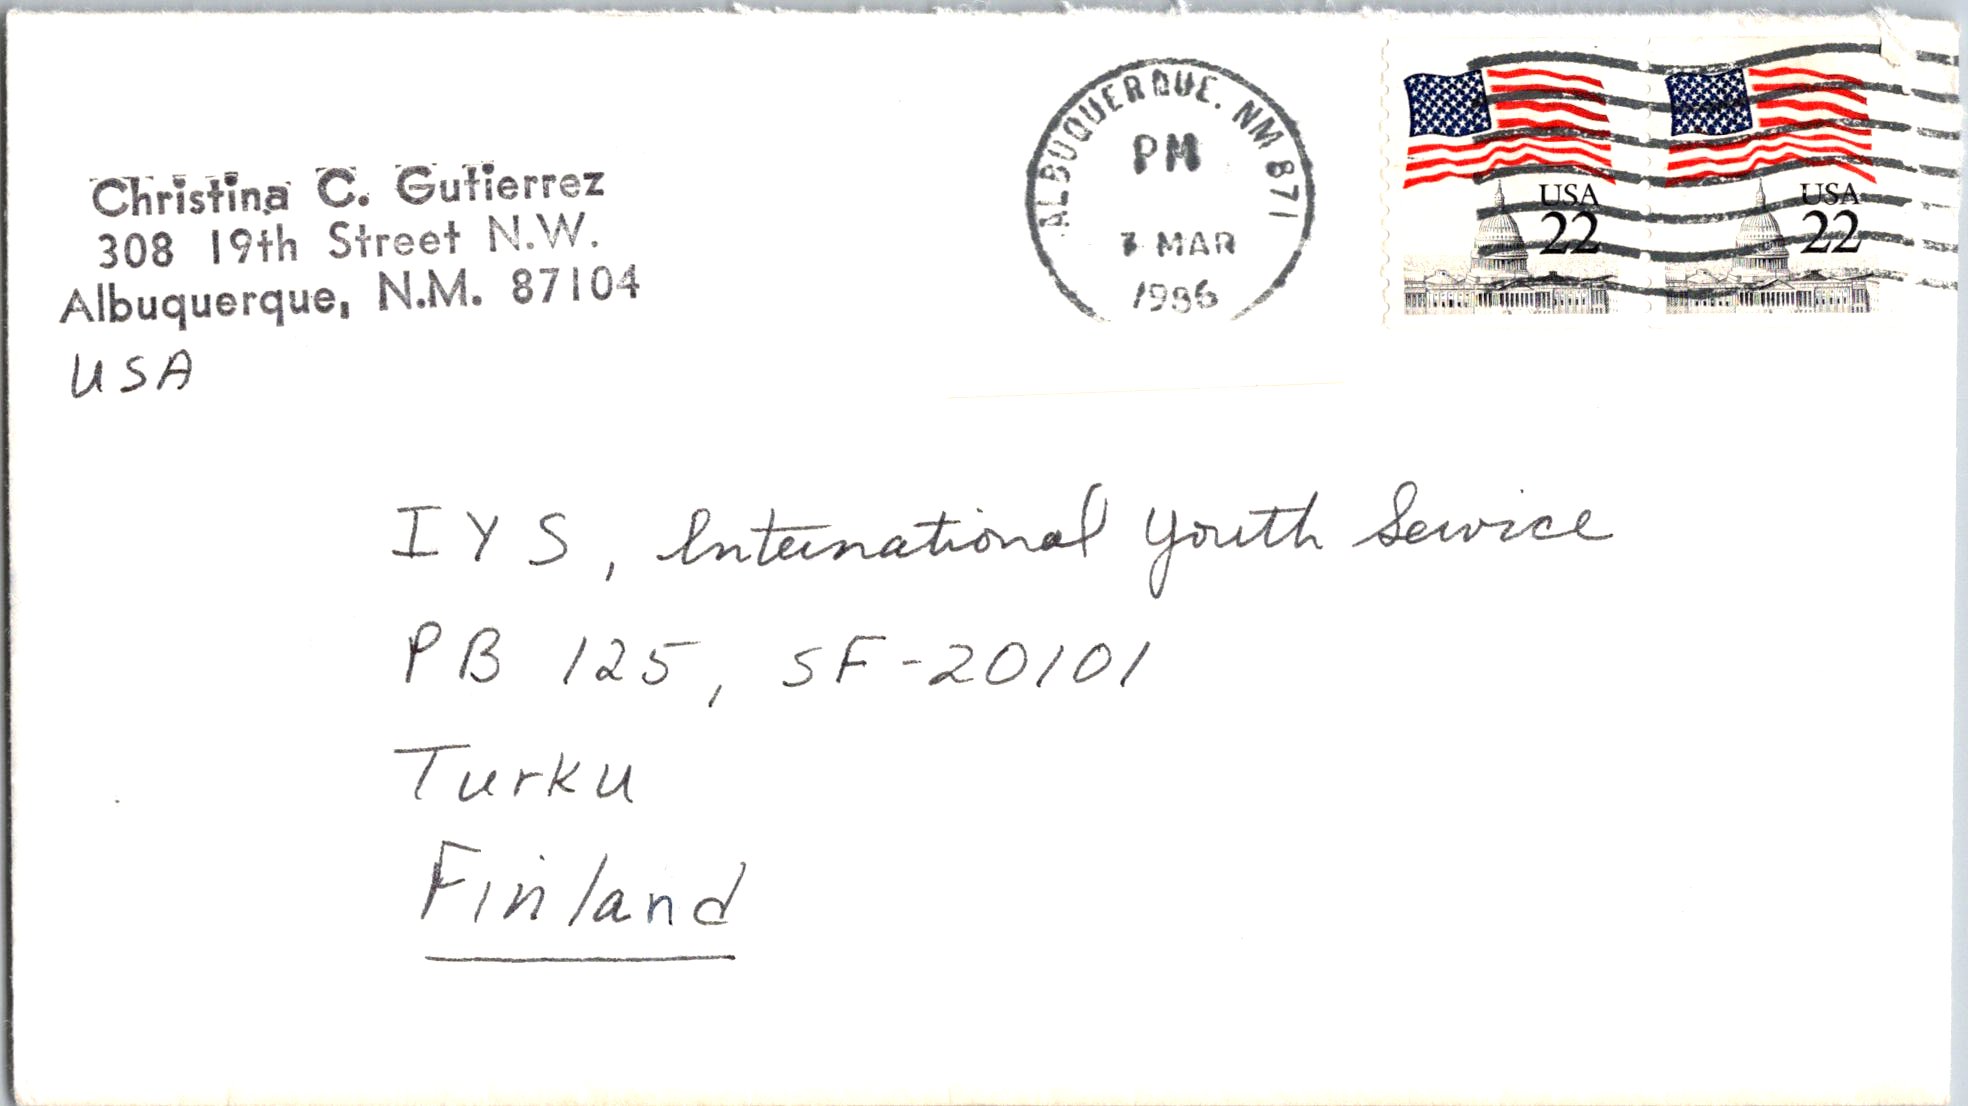 Christina C. Gutierrez
308 19th Street N.W.
Albuquerque, N.M. 87104
USA
ALBUQUERQUE, NM 871
PM
MAR
1986
USA
22
USA
22
IYS, International Youth Service
PB 125, SF-20101
Turku
Finland